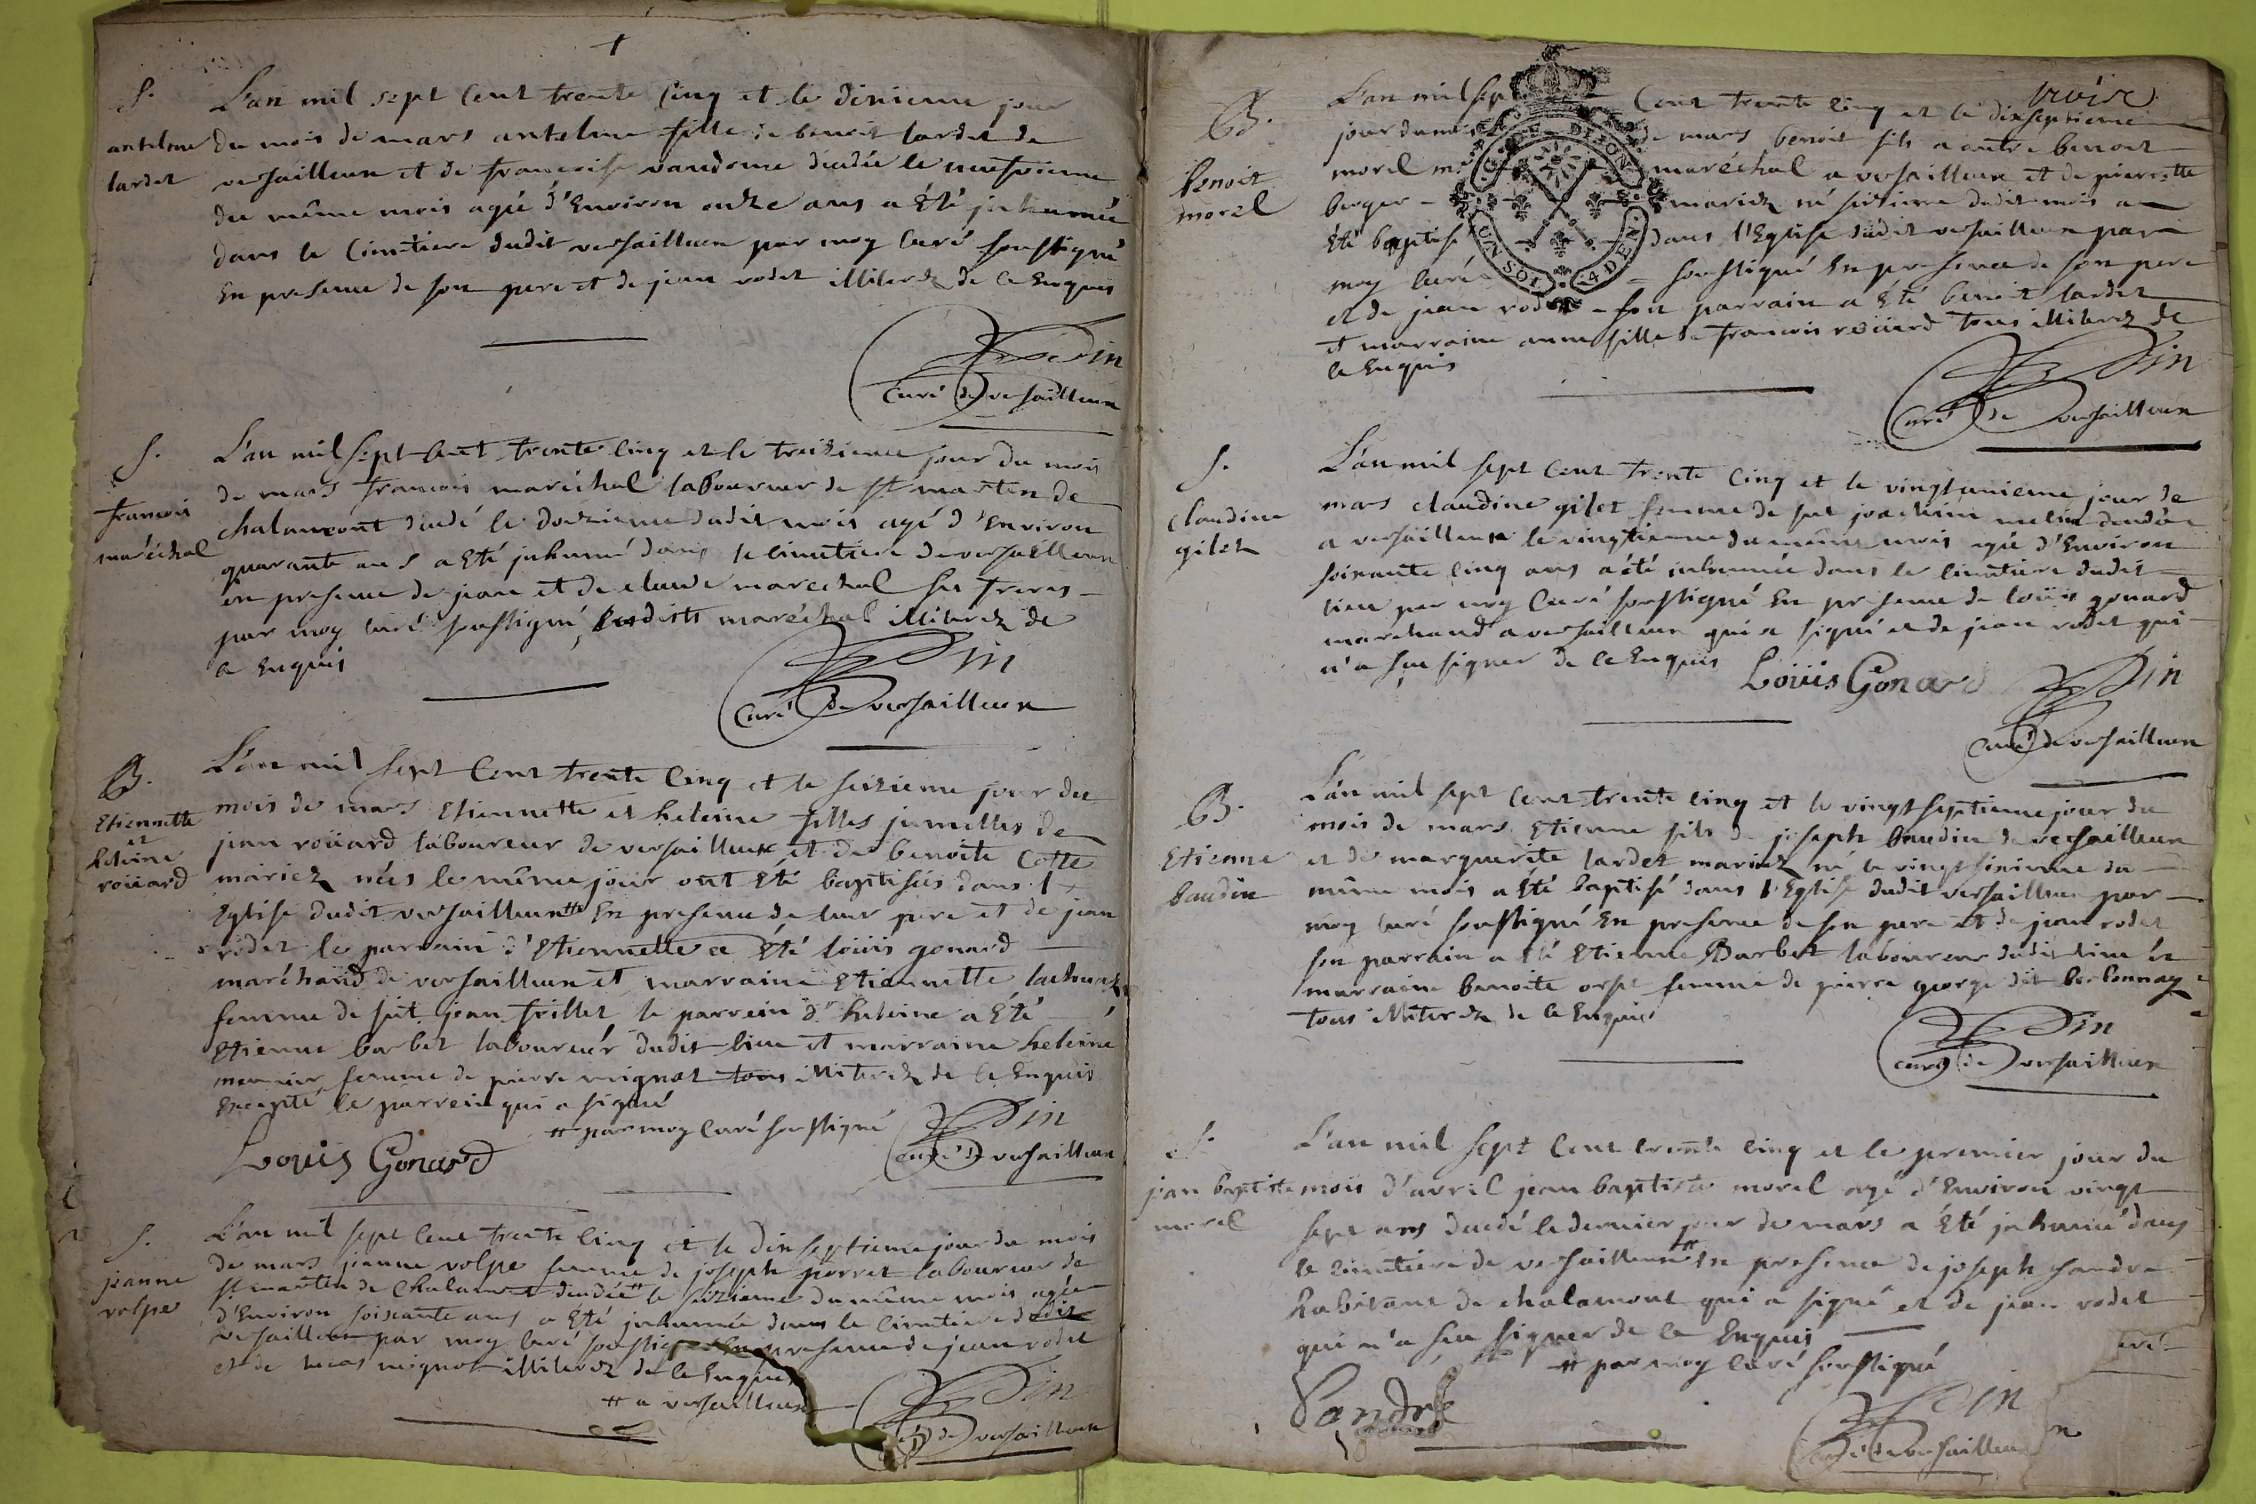 S.
antelme
lardet
L'an mil sept cent trente cinq et le dixieme jour
du mois de mars antelme fille de benoit lardet de
versailleux et de francoise vandome decedée le neufvieme
du même mois agé d'Environ onze ans a Eté inhumée
dans le Cimetiere dudit versailleux par moy curé soussigné
En presence de son pere et de jean rodet illiterez de ce Enquis
Curé de versailleux
S.
francois
maréchal
L'an mil sept cent trente cinq et le treizieme jour du mois
de mars francois maréchal laboureur de st martin de
chalamont decedé le douzieme dudit mois agé d'Environ
quarante ans a Eté inhumé dans le cimetiere de versailleux
en presence de jean et de claude marechal ses freres
par moy curé soussigné, lesdits maréchal illiterez de
ce Enquis
Curé de versailleux
B.
Etiennette
et
heleine
roüard
L'an mil sept Cent trente Cinq et le seizieme jour du
mois de mars Etiennette et heleine filles jumelles de
jean roüard laboureur de versailleux et de benoite Cotte
mariez nées le même jour ont Eté baptisées dans l'
Eglise dudit versailleux # En presence de leur pere et de jean
rodet le parrain d'Etiennette a Eté loüis gonard
marchand de versailleux et marraine Etiennette
femme de fut jean frillet le parrein d'heleine a Eté
Etienne barbet laboureur dudit lieu et marraine heleine
femme de pierre mignot tous illiterez de ce Enquis
Excepté le parrein qui a signé
# par moy curé soussigné
Louis Gonard
curé de versailleux
S.
jeanne
volpe
L'an mil sept cent trente cinq et le dix septieme jour du mois
de mars jeanne volpe femme de joseph perret laboureur de
st martin de Chalamont decedée # le seizieme du même mois agée
d'Environ soixante ans a Eté inhumée dans le Cimetiere dudit
versailleux par moy curé soussigné En presence de jean rodet
et de mignot illiterez de ce Enquis
# a versailleux
curé de versailleux
treize
B.
benoit
morel
L'an mil sept Cent trente cinq et le dixseptieme
jour du mois de mars benoit fils a autre benoit
morel maréchal a versailleux et de pierrette
berger mariez né seizieme dudit mois a
Eté baptisé dans l'Eglise dudit versailleux par
moy curé soussigné En presence de son pere
et de jean rodet son parrain a Eté benoit lardet
et marraine anne fille de francois roüard tous illiterez de
ce Enquis
GE. DE DIJON
UN SOL 4 DEN
Curé de versailleux
S.
claudine
gilet
L'an mil sept cent trente cinq et le vingtunieme jour de
mars claudine gilet femme de fut joachim melin decedée
a versailleux le vingtieme du même mois agé d'Environ
soixante cinq ans a été inhumée dans le cimetiere dudit
lieu par moy Curé soussigné En presence de loüis gonard
marchand a versailleux qui a signé et de jean rodet qui
n'a sçu signer de ce Enquis
Louis Gonard
curé de versailleux
B.
Etienne
baudin
L'an mil sept cent trente cinq et le vingt septieme jour du
mois de mars Etienne fils de joseph baudin de versailleux
et de marguerite lardet mariez né le vingt sixieme du
même mois a Eté baptisé dans l'Eglise dudit versailleux par
moy curé soussigné En presence de son pere et de jean rodet
son parrain a Eté Etienne Barbet laboureur dudit lieu et
marraine benoite orset femme de pierre george dit
tous illiterez de ce Enquis
curé de versailleux
S.
jean baptiste
morel
L'an mil sept cent trente cinq et le premier jour du
mois d'avril jean baptiste morel agé d'Environ vingt
sept ans decedé le dernier jour de mars a Eté inhumé dans
le cimetiere de versailleux # En presence de joseph sandre
habitant de chalamont qui a signé et de jean rodet
qui n'a sçu signer de ce Enquis
# par moy curé soussigné
Sandre
curé de versailleux